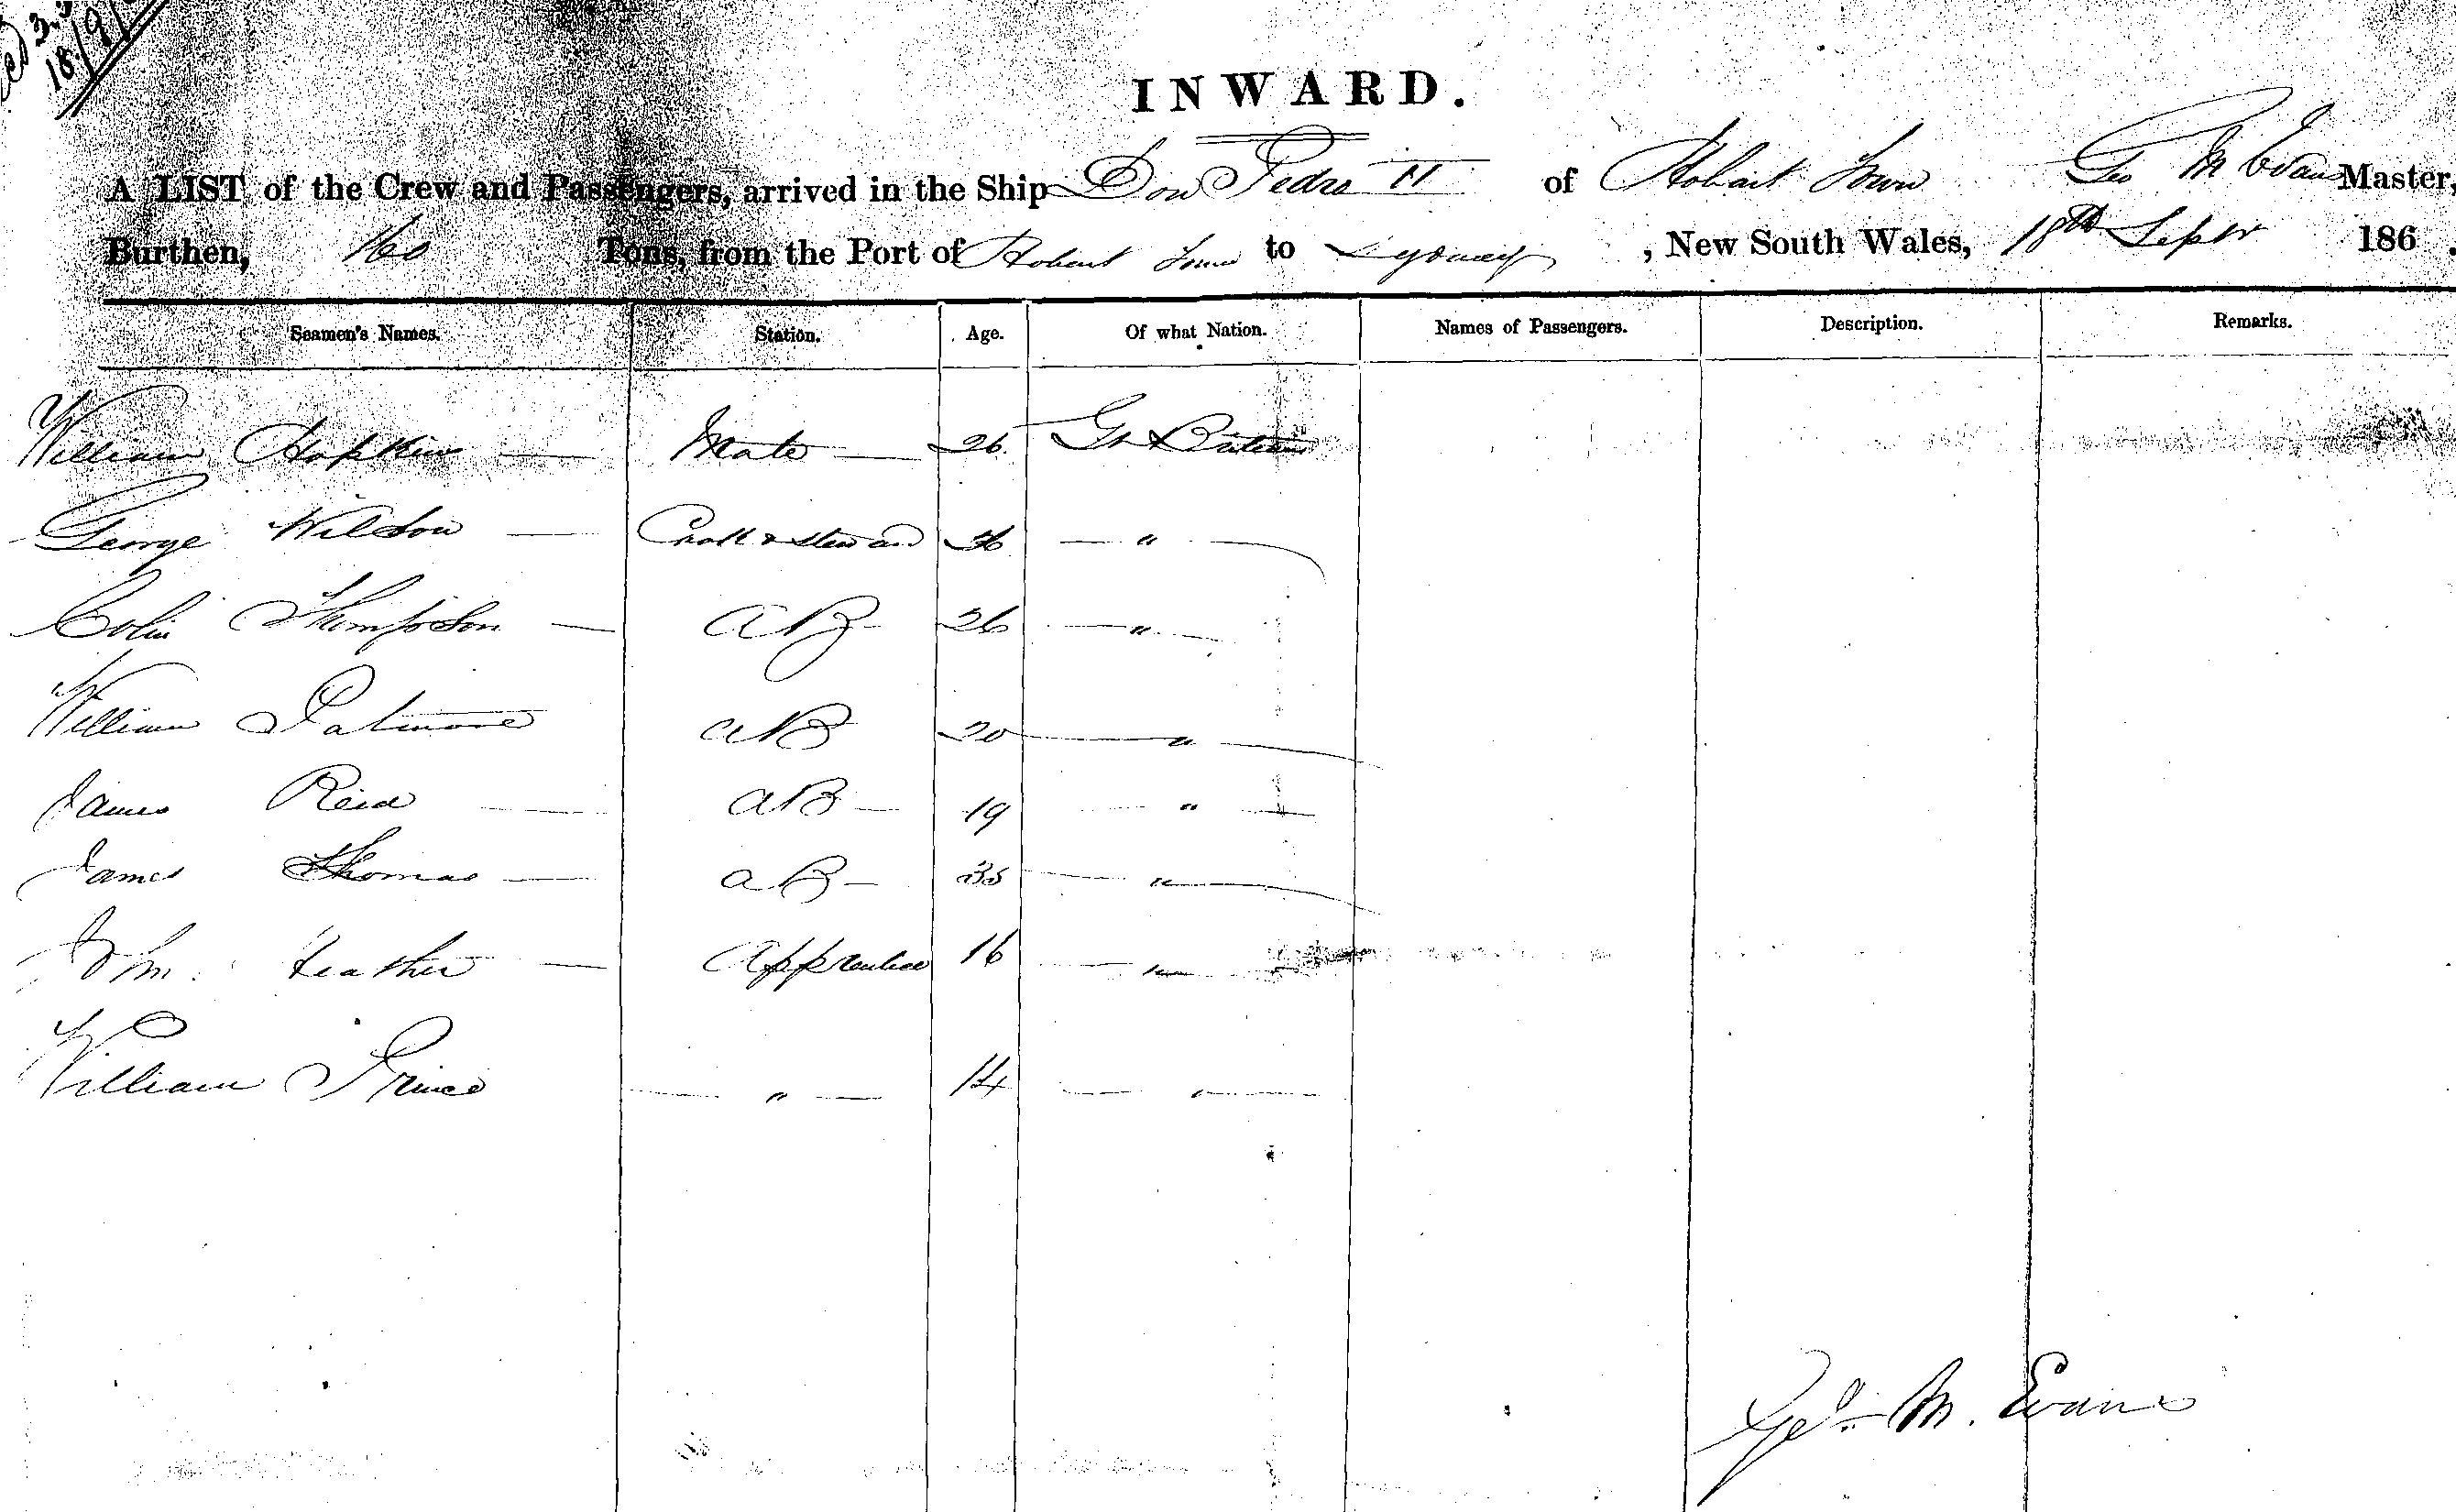 18/9/
INWARD.
A LIST of the Crew and Passengers, arrived in the Ship Don Pedro II of Hobart Town Geo M Evans Master,
Burthen, 160 Tons, from the Port of Hobart Town to Sydney, New South Wales, 18th Septr 186 .
Seamen's Names. Station. Age. Of what Nation. Names of Passengers. Description. Remarks.
William Hopkins — Mate — 26 Gt Britain
George Wilson — Cook & Steward 36 — " —
Colin Thompson — AB — 26 — " —
William Patmore AB 20 — " —
James Reid — AB — 19 — " —
James Thomas — AB — 35 — " —
Jno. Heather — Apprentice 16 — " —
William Prince — " — 14 — " —
Geo. M. Evans